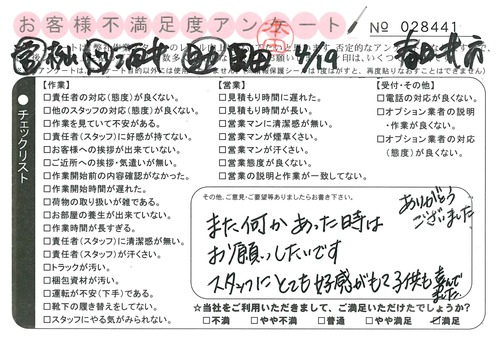 お客様不満足度アンケート
№ 028441
4/19
チェックリスト
【作業】
□責任者の対応(態度)が良くない。
□他のスタッフの対応(態度)が良くない。
□作業を見ていて不安がある。
□責任者(スタッフ)に好感が持てない。
□お客様への挨拶が出来ていない。
□ご近所への挨拶・気遣いが無い。
□作業開始前の内容確認がなかった。
□作業開始時間が遅れた。
□荷物の取り扱いが雑である。
□お部屋の養生が出来ていない。
□作業時間が長すぎる。
□責任者(スタッフ)に清潔感が無い。
□責任者(スタッフ)が汗くさい。
□トラックが汚い。
□梱包資材が汚い。
□運転が不安(下手)である。
□靴下の履き替えをしてない。
□スタッフにやる気がみられない。
【営業】
□見積もり時間に遅れた。
□見積もり時間が長い。
□営業マンに清潔感が無い。
□営業マンが煙草くさい。
□営業マンが汗くさい。
□営業態度が良くない。
□営業の説明と作業が一致してない。
【受付・その他】
□電話の対応が良くない。
□オプション業者の説明
・作業が良くない。
□オプション業者の対応
(態度)が良くない。
その他、ご意見・ご要望等ありましたらお書き下さい。
ありがとう
ございました
また何かあった時は
お願いしたいです
スタッフにとても好感がもて子供も喜んで
ました
☆当社をご利用いただきまして、ご満足いただけたでしょうか?
□不満 □やや不満 □普通 □やや満足 ☑満足